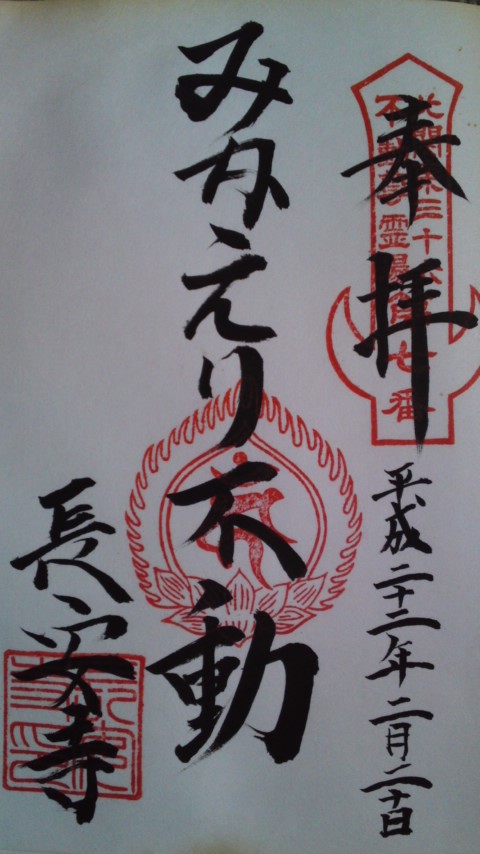 奉拝
北関東三十六
不動尊霊場第七番
平成二十二年二月二十日
みかえり不動
長安寺